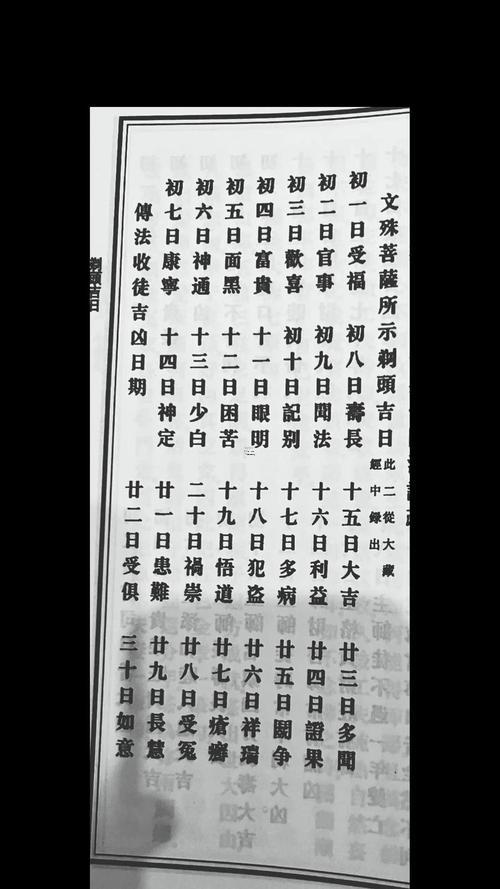 文殊菩薩所示剃頭吉日 此二從大藏
經中録出
初一日受福 初八日壽長 十五日大吉 廿三日多聞
初二日官事 初九日聞法 十六日利益 廿四日證果
初三日歡喜 初十日記别 十七日多病 廿五日鬪争
初四日富貴 十一日眼明 十八日犯盗 廿六日祥瑞
初五日面黑 十二日困苦 十九日悟道 廿七日瘡癬
初六日神通 十三日少白 二十日禍崇 廿八日受冤
初七日康寧 十四日神定 廿一日患難 廿九日長慧
傳法收徒吉凶日期 廿二日受俱 三十日如意